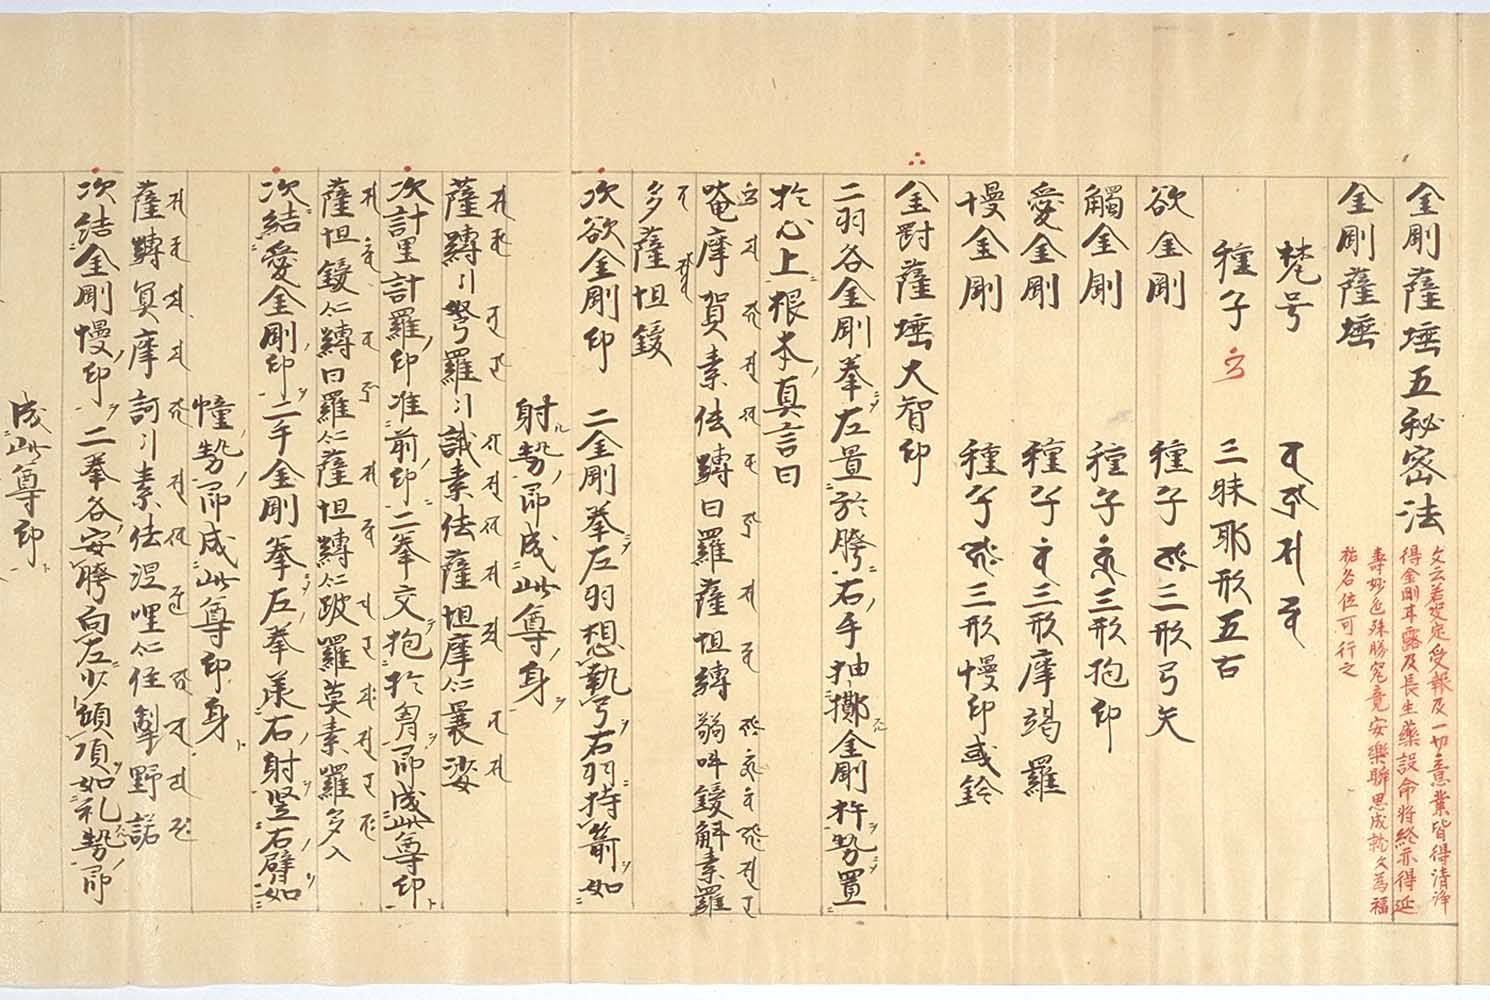 金剛薩埵五秘密法
文云若受定受報及一切意業皆得清浄
得金剛甘露及長生藥設命将終亦得延
壽妙色殊勝究竟安樂聊思成就文為福
祐名位可行之
金剛薩埵
梵号
種子 三昧耶形五古
欲金剛 種子 三形弓矢
觸金剛 種子 三形抱印
愛金剛 種子 三形摩竭羅
慢金剛 種子 三形慢印或鈴
金剛薩埵大智印
二羽各金剛拳左置於胯右手抽擲金剛杵勢置
於心上根本真言曰
唵摩賀素佉縛曰羅薩怛縛 弱吽鍐斛素羅
多薩怛鍐
次欲金剛印 二金剛拳左羽想執弓右羽持箭如
射勢即成此尊身
薩縛引 羅引誐素佉薩怛摩仁曩娑
次計里計羅印准前印二拳交抱於胷即成此尊印
薩怛鍐仁縛曰羅仁薩怛縛仁跛羅莫素羅多入
次結愛金剛印二手金剛拳左拳承右射竪右臂如
幢勢即成此尊印身
薩縛冥摩訶引素佉涅哩仁住掣野諾
次結金剛慢印二拳各安胯向左少頭頂如礼勢即
成此尊印